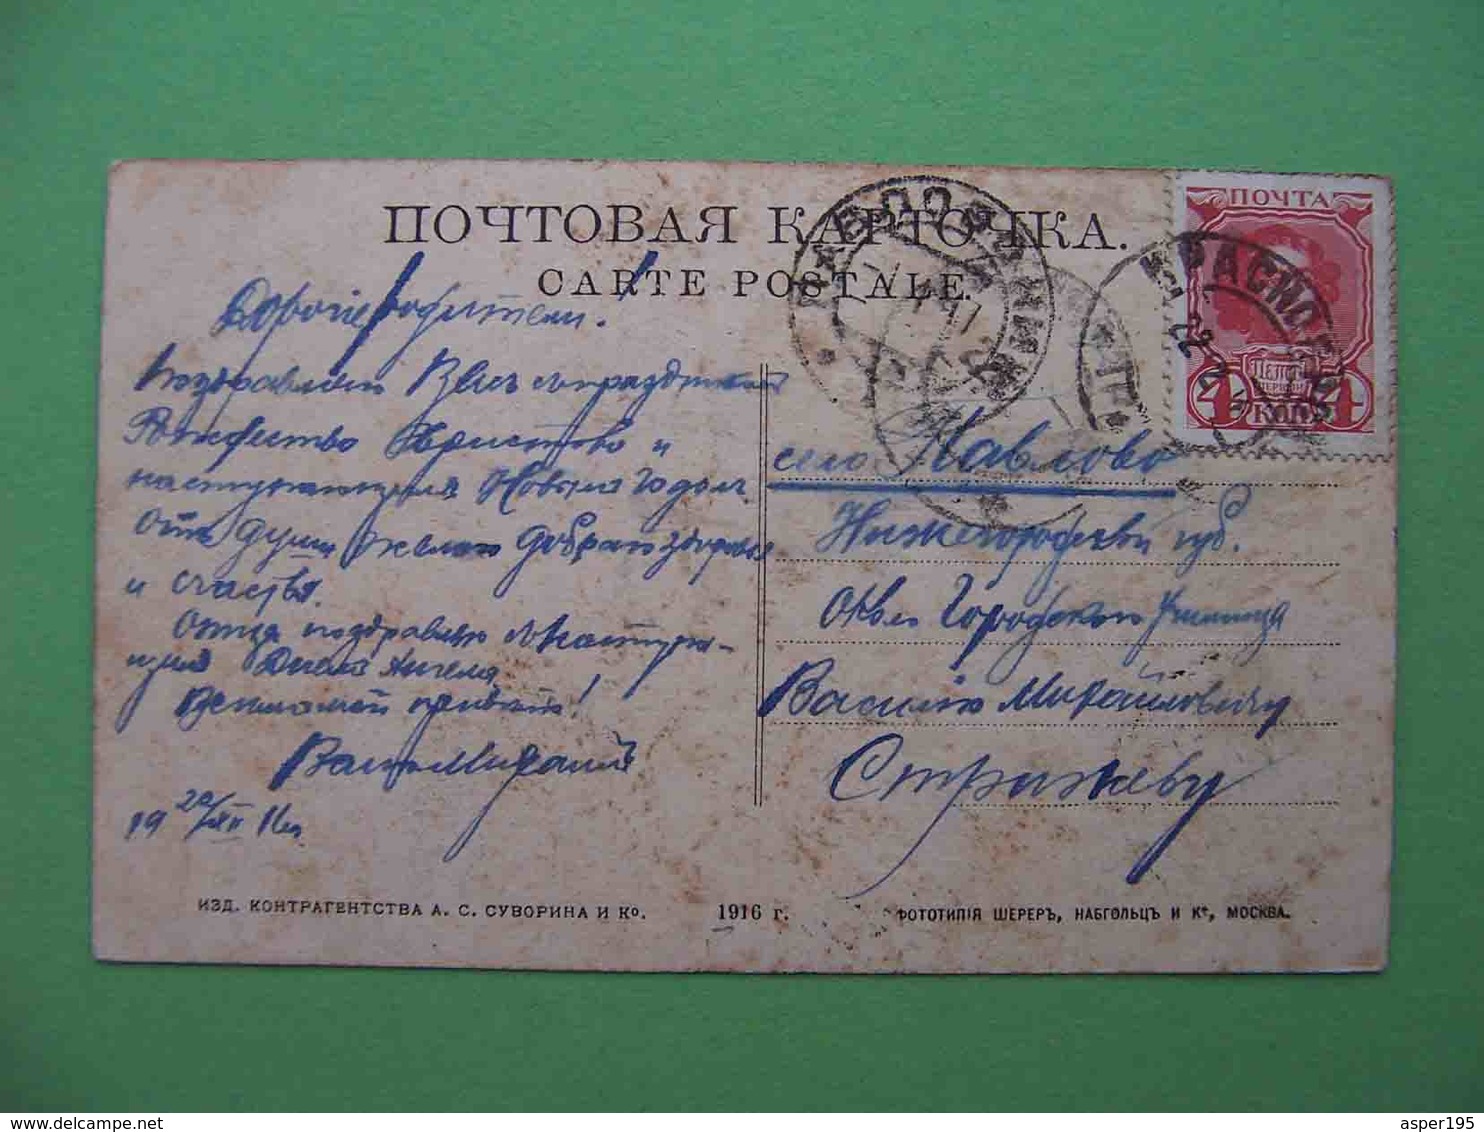 ПОЧТОВАЯ КАРТОЧКА.
CARTE POSTALE.
Дорогіе родители!
Поздравляю Васъ съ праздникомъ
Рождество Христово и
наступающимъ Новымъ Годомъ
Отъ души желаю добраго здоровья
и счастья.
Отца поздравляю съ наступаю-
щимъ Днемъ Ангела
привѣтъ!
Вашъ Михаилъ
19 20/XII 16
село Павлово
Нижегородской губ.
Около Городского Училища
Василію Михайловичу
Стряжеву
ПОЧТА
4 КОП. 4
ИЗД. КОНТРАГЕНТСТВА А. С. СУВОРИНА И Ко.
1916 г.
ФОТОТИПІЯ ШЕРЕРЪ, НАБГОЛЬЦЪ И Ко, МОСКВА.
asper195